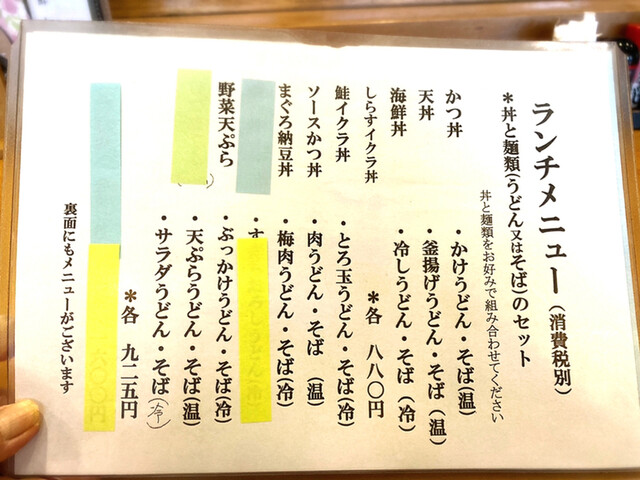 ランチメニュー(消費税別)
*丼と麺類(うどん又はそば)のセット
丼と麺類をお好みで組み合わせてください
かつ丼
・かけうどん・そば(温)
天丼
・釜揚げうどん・そば(温)
海鮮丼
・冷しうどん・そば(冷)
しらすイクラ丼
*各 八八〇円
鮭イクラ丼
・とろ玉うどん・そば(冷)
ソースかつ丼
・肉うどん・そば(温)
まぐろ納豆丼
・梅肉うどん・そば(冷)
・す
ろしうどん(冷)
野菜天ぷら
・ぶっかけうどん・そば(冷)
・天ぷらうどん・そば(温)
・サラダうどん・そば(冷)
*各 九二五円
六〇〇円
裏面にもメニューがございます